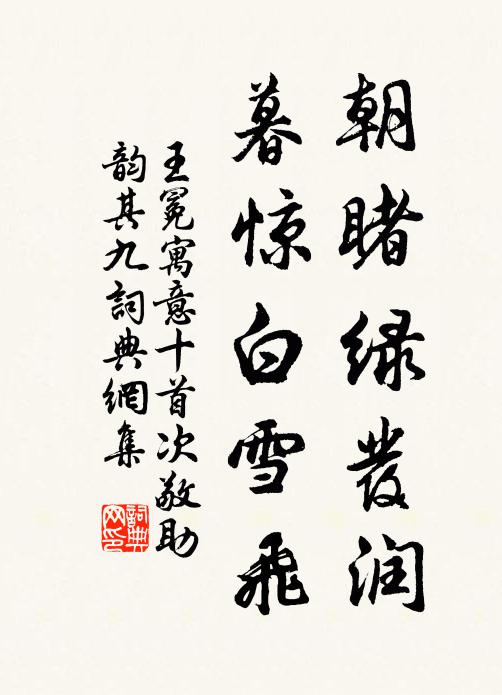 朝睹绿发润
暮惊白雪飛
王冕寓意十首次敬助
韵其九詞典網集
詞典网印